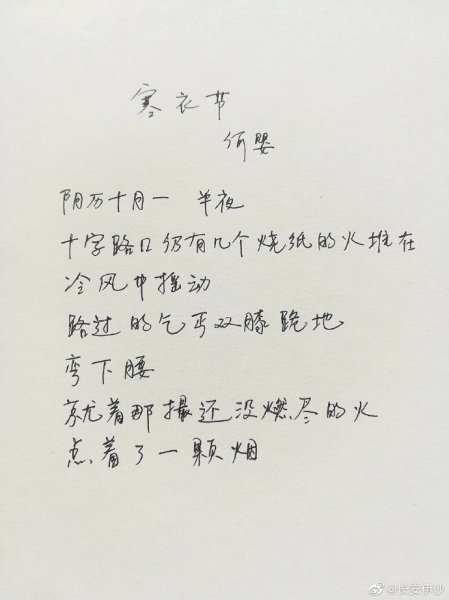 寒衣节
何婴
阴历十月一 半夜
十字路口仍有几个烧纸的火堆在
冷风中摇动
路过的乞丐双膝跪地
弯下腰
就着那撮还没燃尽的火
点着了一颗烟
@长安伊沙